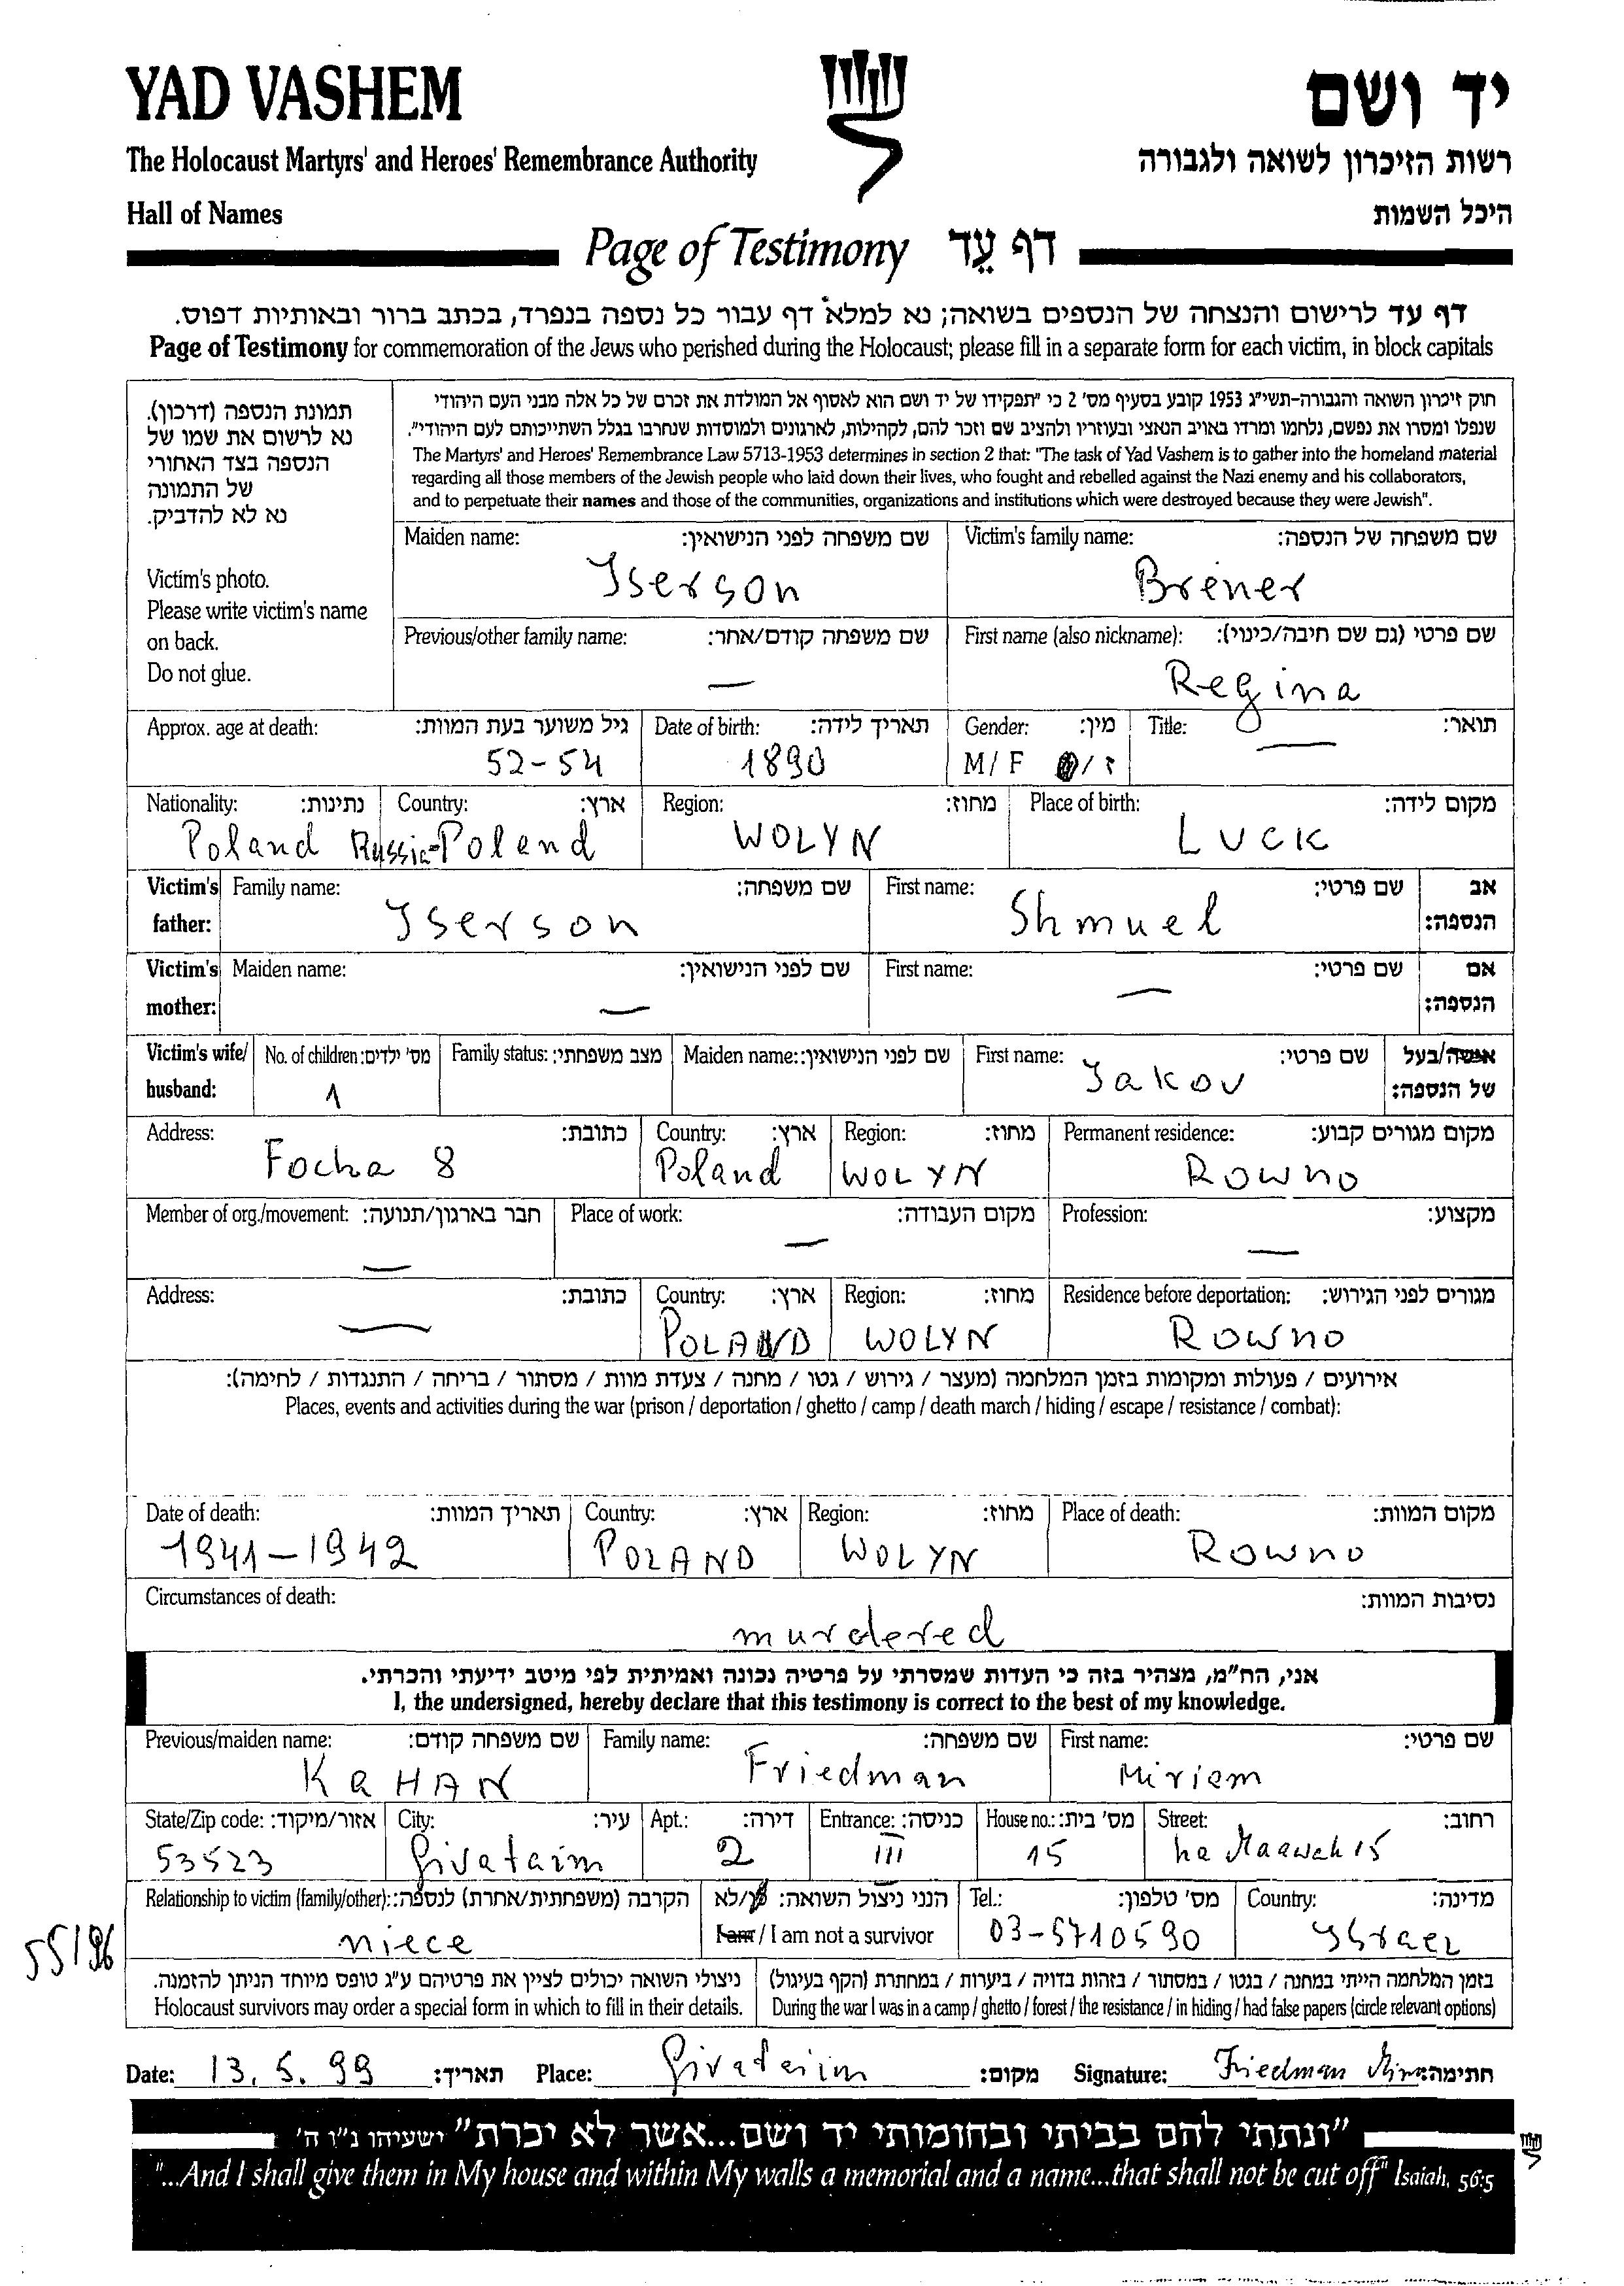 YAD VASHEM
יד ושם
The Holocaust Martyrs' and Heroes' Remembrance Authority
רשות הזיכרון לשואה ולגבורה
Hall of Names
היכל השמות
Page of Testimony דף עֵד
דף עד לרישום והנצחה של הנספים בשואה; נא למלא דף עבור כל נספה בנפרד, בכתב ברור ובאותיות דפוס.
Page of Testimony for commemoration of the Jews who perished during the Holocaust; please fill in a separate form for each victim, in block capitals
תמונת הנספה (דרכון).
נא לרשום את שמו של
הנספה בצד האחורי
של התמונה
נא לא להדביק.
Victim's photo.
Please write victim's name
on back.
Do not glue.
חוק זיכרון השואה והגבורה-תשי"ג 1953 קובע בסעיף מס' 2 כי "תפקידו של יד ושם הוא לאסוף אל המולדת את זכרם של כל אלה מבני העם היהודי
שנפלו ומסרו את נפשם, נלחמו ומרדו באויב הנאצי ובעוזריו ולהציב שם וזכר להם, לקהילות, לארגונים ולמוסדות שנחרבו בגלל השתייכותם לעם היהודי".
The Martyrs' and Heroes' Remembrance Law 5713-1953 determines in section 2 that: "The task of Yad Vashem is to gather into the homeland material
regarding all those members of the Jewish people who laid down their lives, who fought and rebelled against the Nazi enemy and his collaborators,
and to perpetuate their names and those of the communities, organizations and institutions which were destroyed because they were Jewish".
Maiden name: שם משפחה לפני הנישואין: Victim's family name: שם משפחה של הנספה:
Iserson Brener
Previous/other family name: שם משפחה קודם/אחר: First name (also nickname): שם פרטי (גם שם חיבה/כינוי):
— Regina
Approx. age at death: גיל משוער בעת המוות: Date of birth: תאריך לידה: Gender: מין: Title: תואר:
52-54 1890 M/F /נ —
Nationality: נתינות: Country: ארץ: Region: מחוז: Place of birth: מקום לידה:
Poland Russia-Poland WOLYN LUCK
Victim's Family name: שם משפחה: First name: שם פרטי: אב
father: Iserson Shmuel הנספה:
Victim's Maiden name: שם לפני הנישואין: First name: שם פרטי: אם
mother: — — הנספה:
Victim's wife/ No. of children: מס' ילדים: Family status: מצב משפחתי: Maiden name: שם לפני הנישואין: First name: שם פרטי: אשה/בעל
husband: 1 Jakov של הנספה:
Address: כתובת: Country: ארץ: Region: מחוז: Permanent residence: מקום מגורים קבוע:
Focha 8 Poland WOLYN ROWNO
Member of org./movement: חבר בארגון/תנועה: Place of work: מקום העבודה: Profession: מקצוע:
— — —
Address: כתובת: Country: ארץ: Region: מחוז: Residence before deportation: מגורים לפני הגירוש:
— POLAND WOLYN ROWNO
אירועים / פעולות ומקומות בזמן המלחמה (מעצר / גירוש / גטו / מחנה / צעדת מוות / מסתור / בריחה / התנגדות / לחימה):
Places, events and activities during the war (prison / deportation / ghetto / camp / death march / hiding / escape / resistance / combat):
Date of death: תאריך המוות: Country: ארץ: Region: מחוז: Place of death: מקום המוות:
1941-1942 POLAND WOLYN ROWNO
Circumstances of death: נסיבות המוות:
murdered
אני, הח"מ, מצהיר בזה כי העדות שמסרתי על פרטיה נכונה ואמיתית לפי מיטב ידיעתי והכרתי.
I, the undersigned, hereby declare that this testimony is correct to the best of my knowledge.
Previous/maiden name: שם משפחה קודם: Family name: שם משפחה: First name: שם פרטי:
KaHAN Friedman Miriem
State/Zip code: אזור/מיקוד: City: עיר: Apt.: דירה: Entrance: כניסה: House no.: מס' בית: Street: רחוב:
53523 Givataim 2 III 15 ha 15
Relationship to victim (family/other): הקרבה (משפחתית/אחרת) לנספה: הנני ניצול השואה: כן/לא Tel.: מס' טלפון: Country: מדינה:
niece I am / I am not a survivor 03-5710590 Israel
55196
ניצולי השואה יכולים לציין את פרטיהם ע"ג טופס מיוחד הניתן להזמנה.
Holocaust survivors may order a special form in which to fill in their details.
בזמן המלחמה הייתי במחנה / בגטו / במסתור / בזהות בדויה / ביערות / במחתרת (הקף בעיגול)
During the war I was in a camp / ghetto / forest / the resistance / in hiding / had false papers (circle relevant options)
Date: 13.5.99 תאריך: Place: Givataim מקום: Signature: Friedman חתימה:
"ונתתי להם בביתי ובחומותי יד ושם...אשר לא יכרת" ישעיהו נ"ו ה'
"...And I shall give them in My house and within My walls a memorial and a name...that shall not be cut off" Isaiah, 56:5